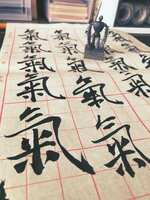 氣氣氣氣
氣氣氣氣氣
氣氣氣氣氣